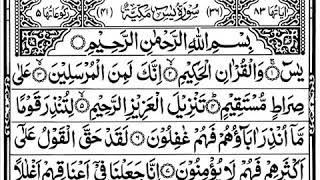 اٰیَاتُهَا ۸۳ (۳۶) سُوْرَةُ يٰسٓ مَكِّيَّةٌ (۴۱) رُكُوْعَاتُهَا ۵
بِسْمِ اللّٰهِ الرَّحْمٰنِ الرَّحِيْمِ
يٰسٓ ۚ وَالْقُرْاٰنِ الْحَكِيْمِ ۙ اِنَّكَ لَمِنَ الْمُرْسَلِيْنَ ۙ عَلٰى
صِرَاطٍ مُّسْتَقِيْمٍ ؕ تَنْزِيْلَ الْعَزِيْزِ الرَّحِيْمِ ۙ لِتُنْذِرَ قَوْمًا
مَّاۤ اُنْذِرَ اٰبَآؤُهُمْ فَهُمْ غٰفِلُوْنَ ۝ لَقَدْ حَقَّ الْقَوْلُ عَلٰۤى
اَكْثَرِهِمْ فَهُمْ لَا يُؤْمِنُوْنَ ۝ اِنَّا جَعَلْنَا فِيْۤ اَعْنَاقِهِمْ اَغْلٰلًا